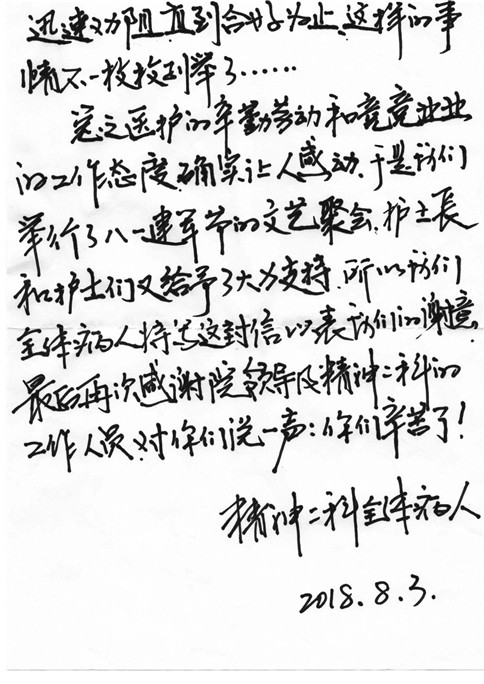 迅速劝阻直到合好为止.这样的事
情不一枚枚列举了……
总之医护的辛勤劳动和竞竞业业
的工作态度.确实让人感动.于是我们
举行了八一建军节的文艺聚会.护士长
和护士们又给予了大力支持.所以我们
全体病人特写这封信以表我们的谢意.
最后再次感谢院领导及精神二科的
工作人员.对你们说一声:你们辛苦了!
精神二科全体病人
2018.8.3.